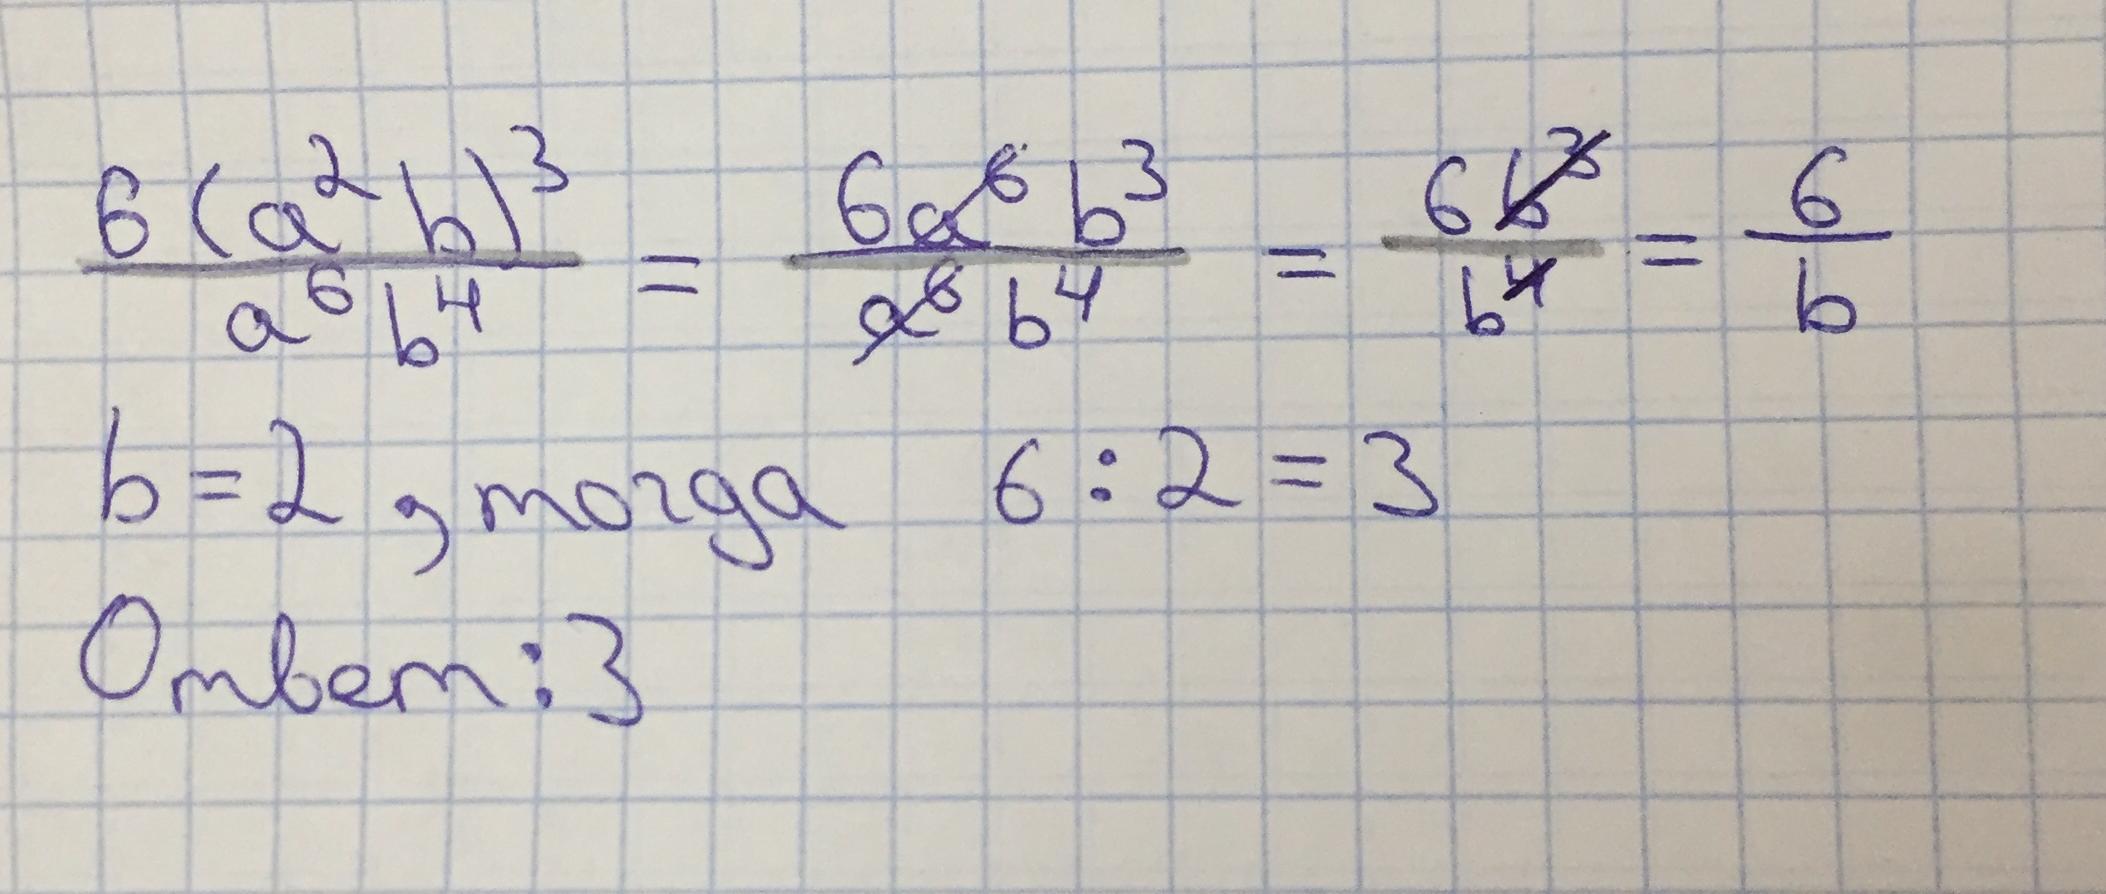 6(a²b)³/a⁶b⁴ = 6a⁶b³/a⁶b⁴ = 6b³/b⁴ = 6/b
b=2, тогда 6:2=3
Ответ:3